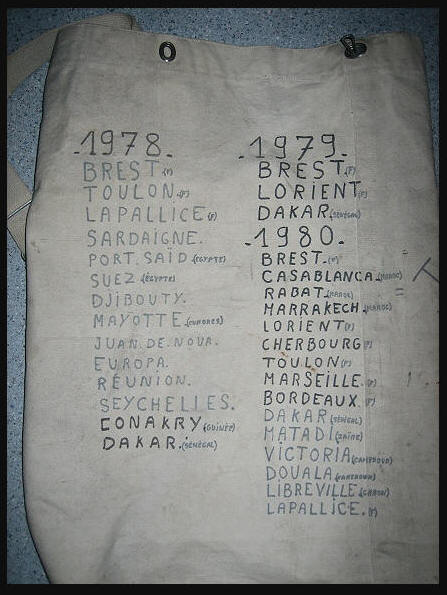 .1978.
BREST.(F)
TOULON.(F)
LAPALLICE.(F)
SARDAIGNE.
PORT.SAID.(EGYPTE)
SUEZ.(ÉGYPTE)
DJIBOUTY.
MAYOTTE.(COMORES)
JUAN.DE.NOVA.
EUROPA.
RÉUNION.
SEYCHELLES.
CONAKRY.(GUINÉE)
DAKAR.(SÉNÉGAL)
.1979.
BREST.(F)
LORIENT.(F)
DAKAR.(SÉNÉGAL)
.1980.
BREST.(F)
CASABLANCA.(MAROC)
RABAT.(MAROC)
MARRAKECH.(MAROC)
LORIENT(F)
CHERBOURG(F)
TOULON.(F)
MARSEILLE.(F)
BORDEAUX.(F)
DAKAR(SÉNÉGAL)
MATADI(ZAÏRE)
VICTORIA(CAMEROUN)
DOUALA.(CAMEROUN)
LIBREVILLE.(GABON)
LAPALLICE.(F)